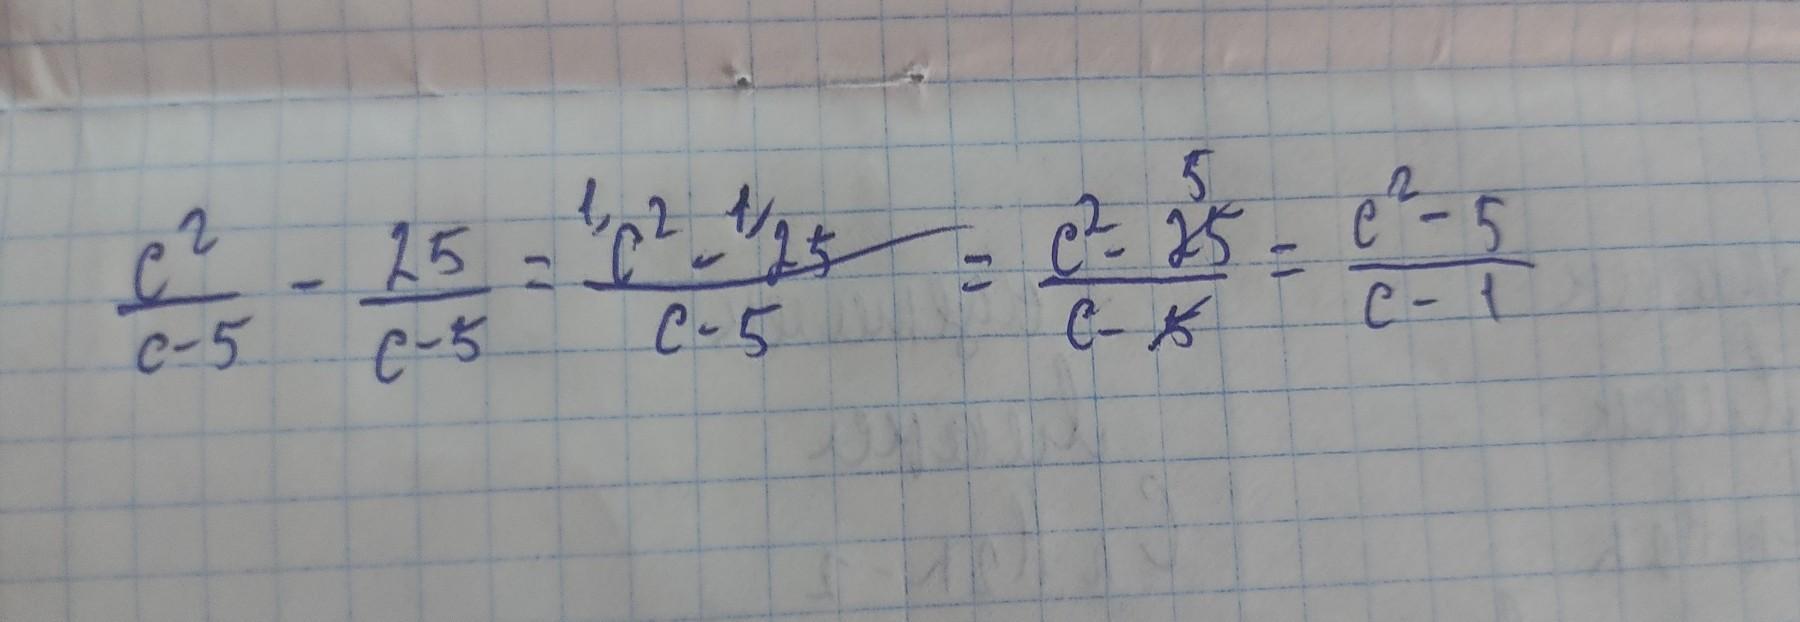 c²/(c-5) - 25/(c-5) = (1/c² - 1/25)/(c-5) = (c² - 25 5)/(c-5) = (c² - 5)/(c - 1)